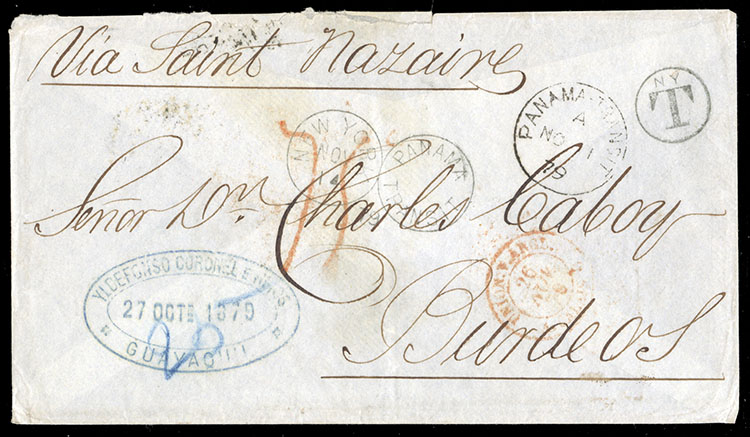 Via Saint Nazaire
NEW YORK
NOV
14
PANAMA
TRANSIT
PANAMA-TRANSIT
A
NO 1
79
N.Y.
T
Señor Dn. Charles Caboy
Burdeos
YLDEFONSO CORONEL E HIJOS
27 OCTE 1879
GUAYAQUIL
26